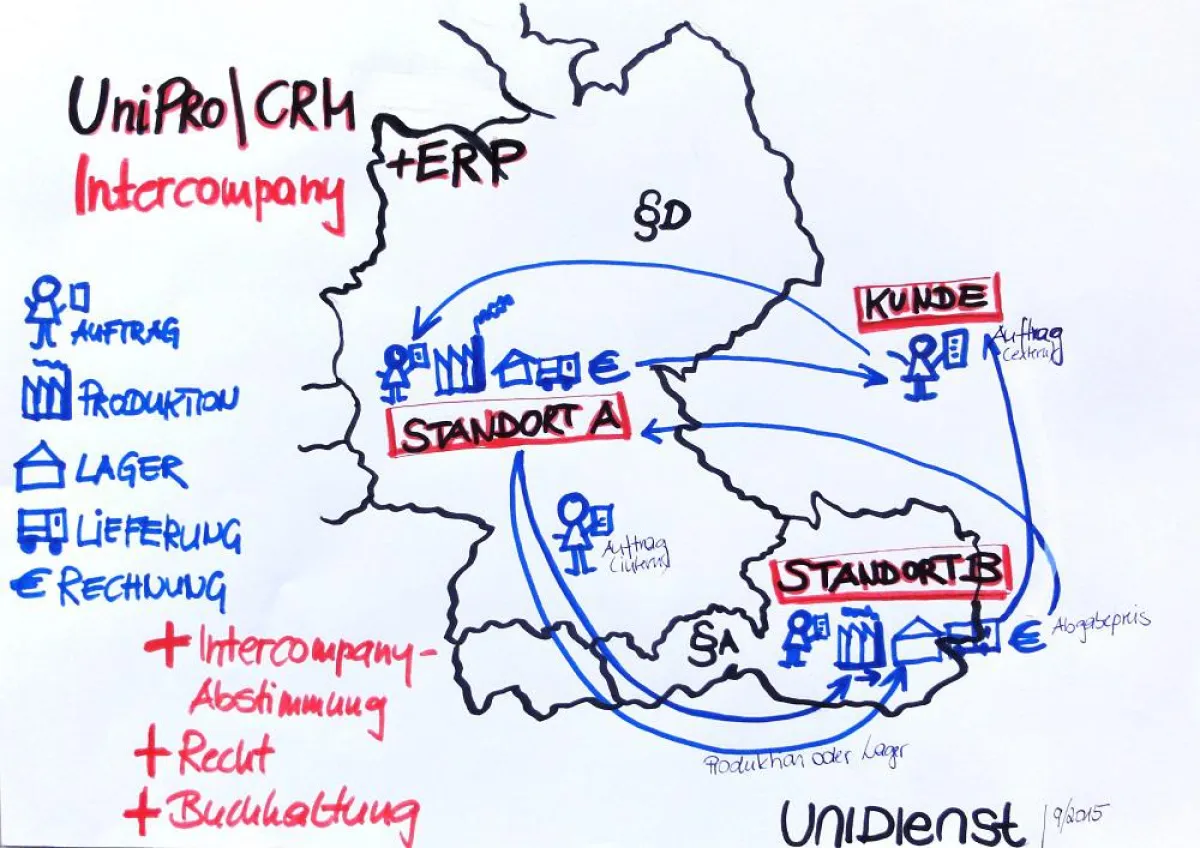 UniPRo | CRM
+ERP
Intercompany
§D
AUFTRAG
PRODUKTION
LAGER
LIEFERUNG
€ RECHNUNG
+ Intercompany-
Abstimmung
+ Recht
+ Buchhaltung
KUNDE
Auftrag
(extern)
€
STANDORT A
Auftrag
(intern)
STANDORT B
§A
€
Abgabepreis
Produktion oder Lager
UNIDIenst | 9/2015